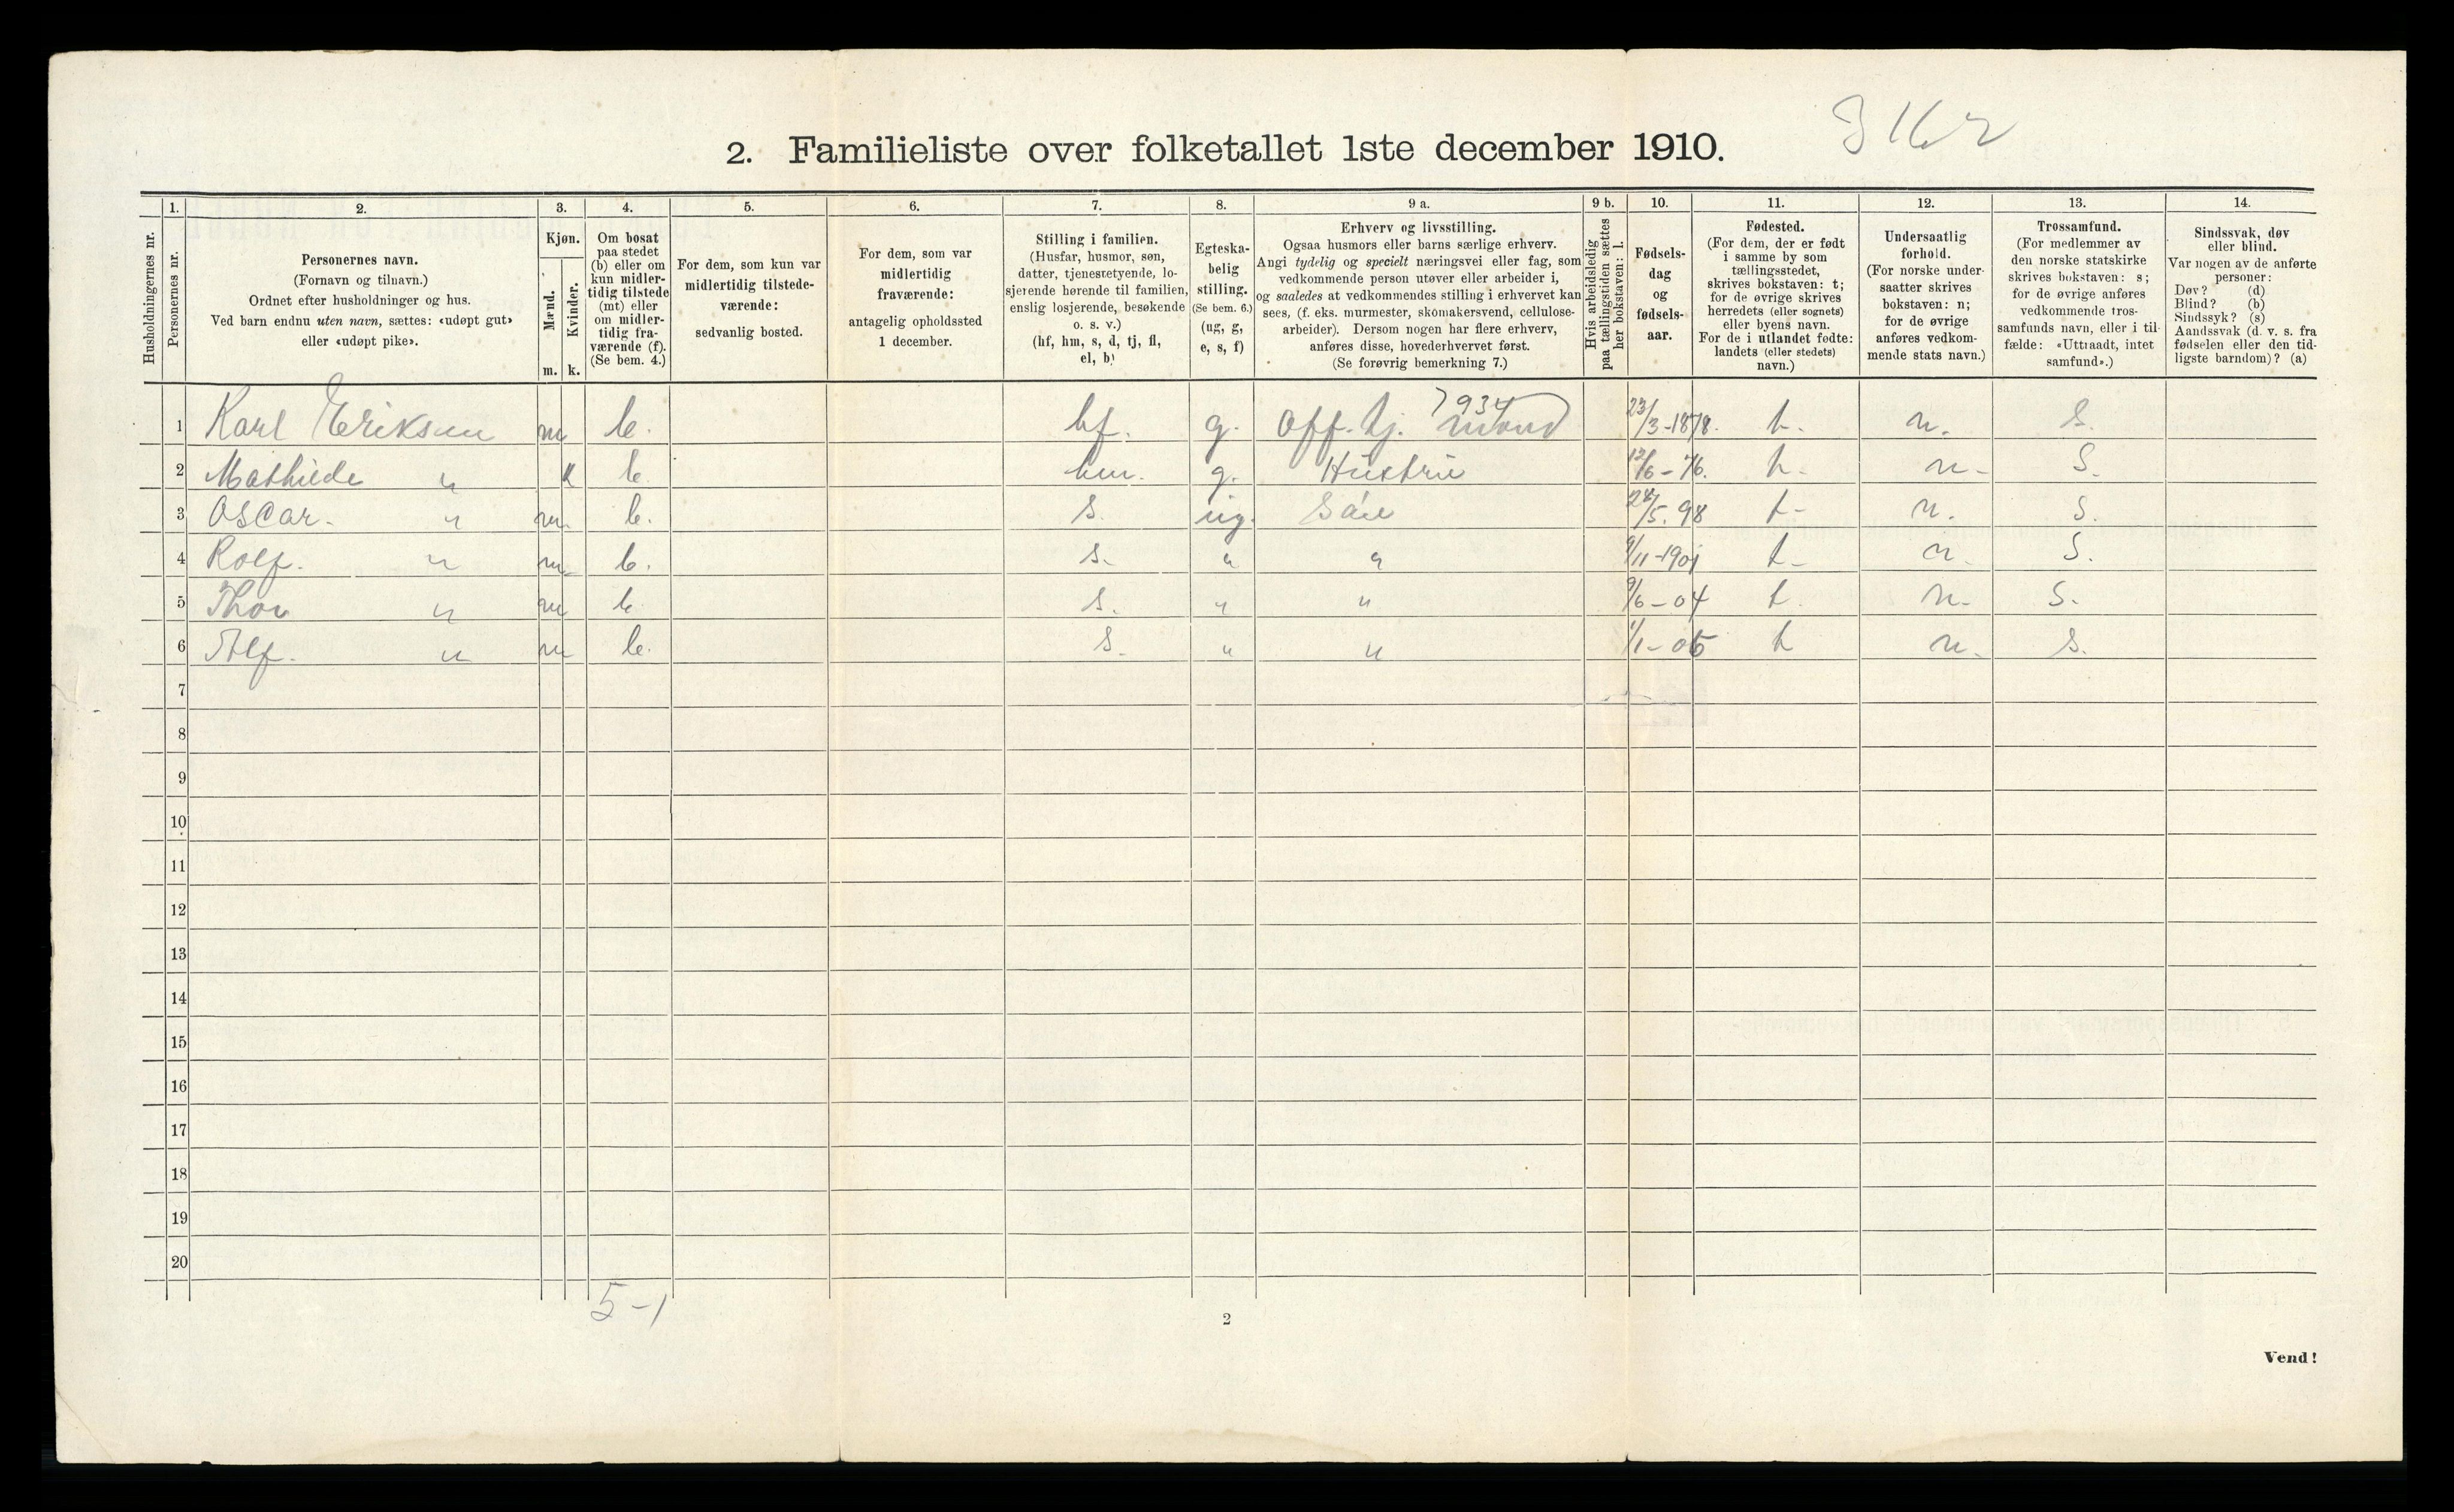 2. Familieliste over folketallet 1ste december 1910.
3 Kr
1. 2. 3. 4. 5. 6. 7. 8. 9 a. 9 b. 10. 11. 12. 13. 14.
Husholdningernes nr.
Personernes nr.
Personernes navn.
(Fornavn og tilnavn.)
Ordnet efter husholdninger og hus.
Ved barn endnu uten navn, sættes: «udøpt gut»
eller «udøpt pike».
Kjøn.
Mænd.
Kvinder.
m. k.
Om bosat
paa stedet
(b) eller om
kun midler-
tidig tilstede
(mt) eller
om midler-
tidig fra-
værende (f).
(Se bem. 4.)
For dem, som kun var
midlertidig tilstede-
værende:
sedvanlig bosted.
For dem, som var
midlertidig
fraværende:
antagelig opholdssted
1 december.
Stilling i familien.
(Husfar, husmor, søn,
datter, tjenestetyende, lo-
sjerende hørende til familien,
enslig losjerende, besøkende
o. s. v.)
(hf, hm, s, d, tj, fl,
el, b)
Egteska-
belig
stilling.
(Se bem. 6.)
(ug, g,
e, s, f)
Erhverv og livsstilling.
Ogsaa husmors eller barns særlige erhverv.
Angi tydelig og specielt næringsvei eller fag, som
vedkommende person utøver eller arbeider i,
og saaledes at vedkommendes stilling i erhvervet kan
sees, (f. eks. murmester, skomakersvend, cellulose-
arbeider). Dersom nogen har flere erhverv,
anføres disse, hovederhvervet først.
(Se forøvrig bemerkning 7.)
Hvis arbeidsledig
paa tællingstiden sættes
her bokstaven: l.
Fødsels-
dag
og
fødsels-
aar.
Fødested.
(For dem, der er født
i samme by som
tællingsstedet,
skrives bokstaven: t;
for de øvrige skrives
herredets (eller sognets)
eller byens navn.
For de i utlandet fødte:
landets (eller stedets)
navn.)
Undersaatlig
forhold.
(For norske under-
saatter skrives
bokstaven: n;
for de øvrige
anføres vedkom-
mende stats navn.)
Trossamfund.
(For medlemmer av
den norske statskirke
skrives bokstaven: s;
for de øvrige anføres
vedkommende tros-
samfunds navn, eller i til-
fælde: «Uttraadt, intet
samfund».)
Sindssvak, døv
eller blind.
Var nogen av de anførte
personer:
Døv? (d)
Blind? (b)
Sindssyk? (s)
Aandssvak (d. v. s. fra
fødselen eller den tid-
ligste barndom)? (a)
7934
1 Karl Eriksen m b. hf. g. Off. tj. mand 23/3-1878. t. n. s.
2 Mathilde " k b. hm. g. Hustru 13/6-76. t. n. s.
3 Oscar. " m. b. s. ug. Søn 24/5.98 t. n. s.
4 Rolf. " m b. s. " " 9/11-1901 t. n. s.
5 Thor " m b. s. " " 9/6-04 t. n. s.
6 Alf. " m b. s. " " 1/1-06 t n. s.
7
8
9
10
11
12
13
14
15
16
17
18
19
20
5-1
2
Vend!